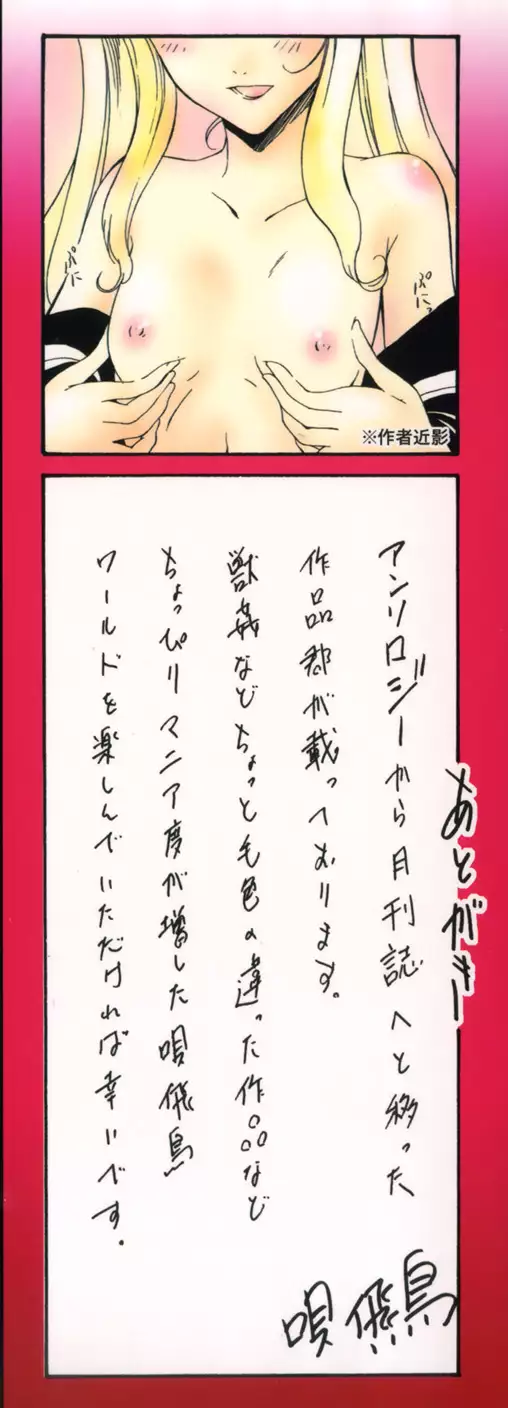 ぷに
ぷにっ
※作者近影
あとがきー
アンソロジーから月刊誌へと移った
作品郡が載っております。
獣姦などちょっと毛色の違った作品など
ちょっぴりマニア度が増した唄飛鳥
ワールドを楽しんでいただければ幸いです.
唄飛鳥